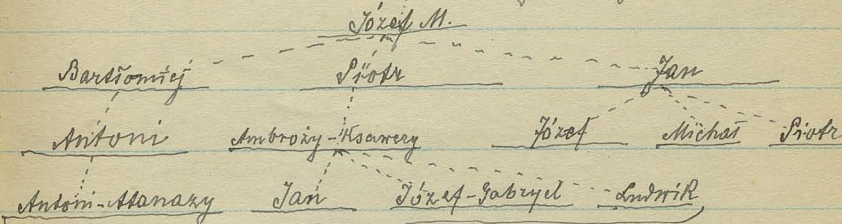 Józef M.
Bartłomiej Piotr Jan
Antoni Ambroży-Ksawery Józef Michał Piotr
Antoni-Atanazy Jan Józef-Gabryel Ludwik